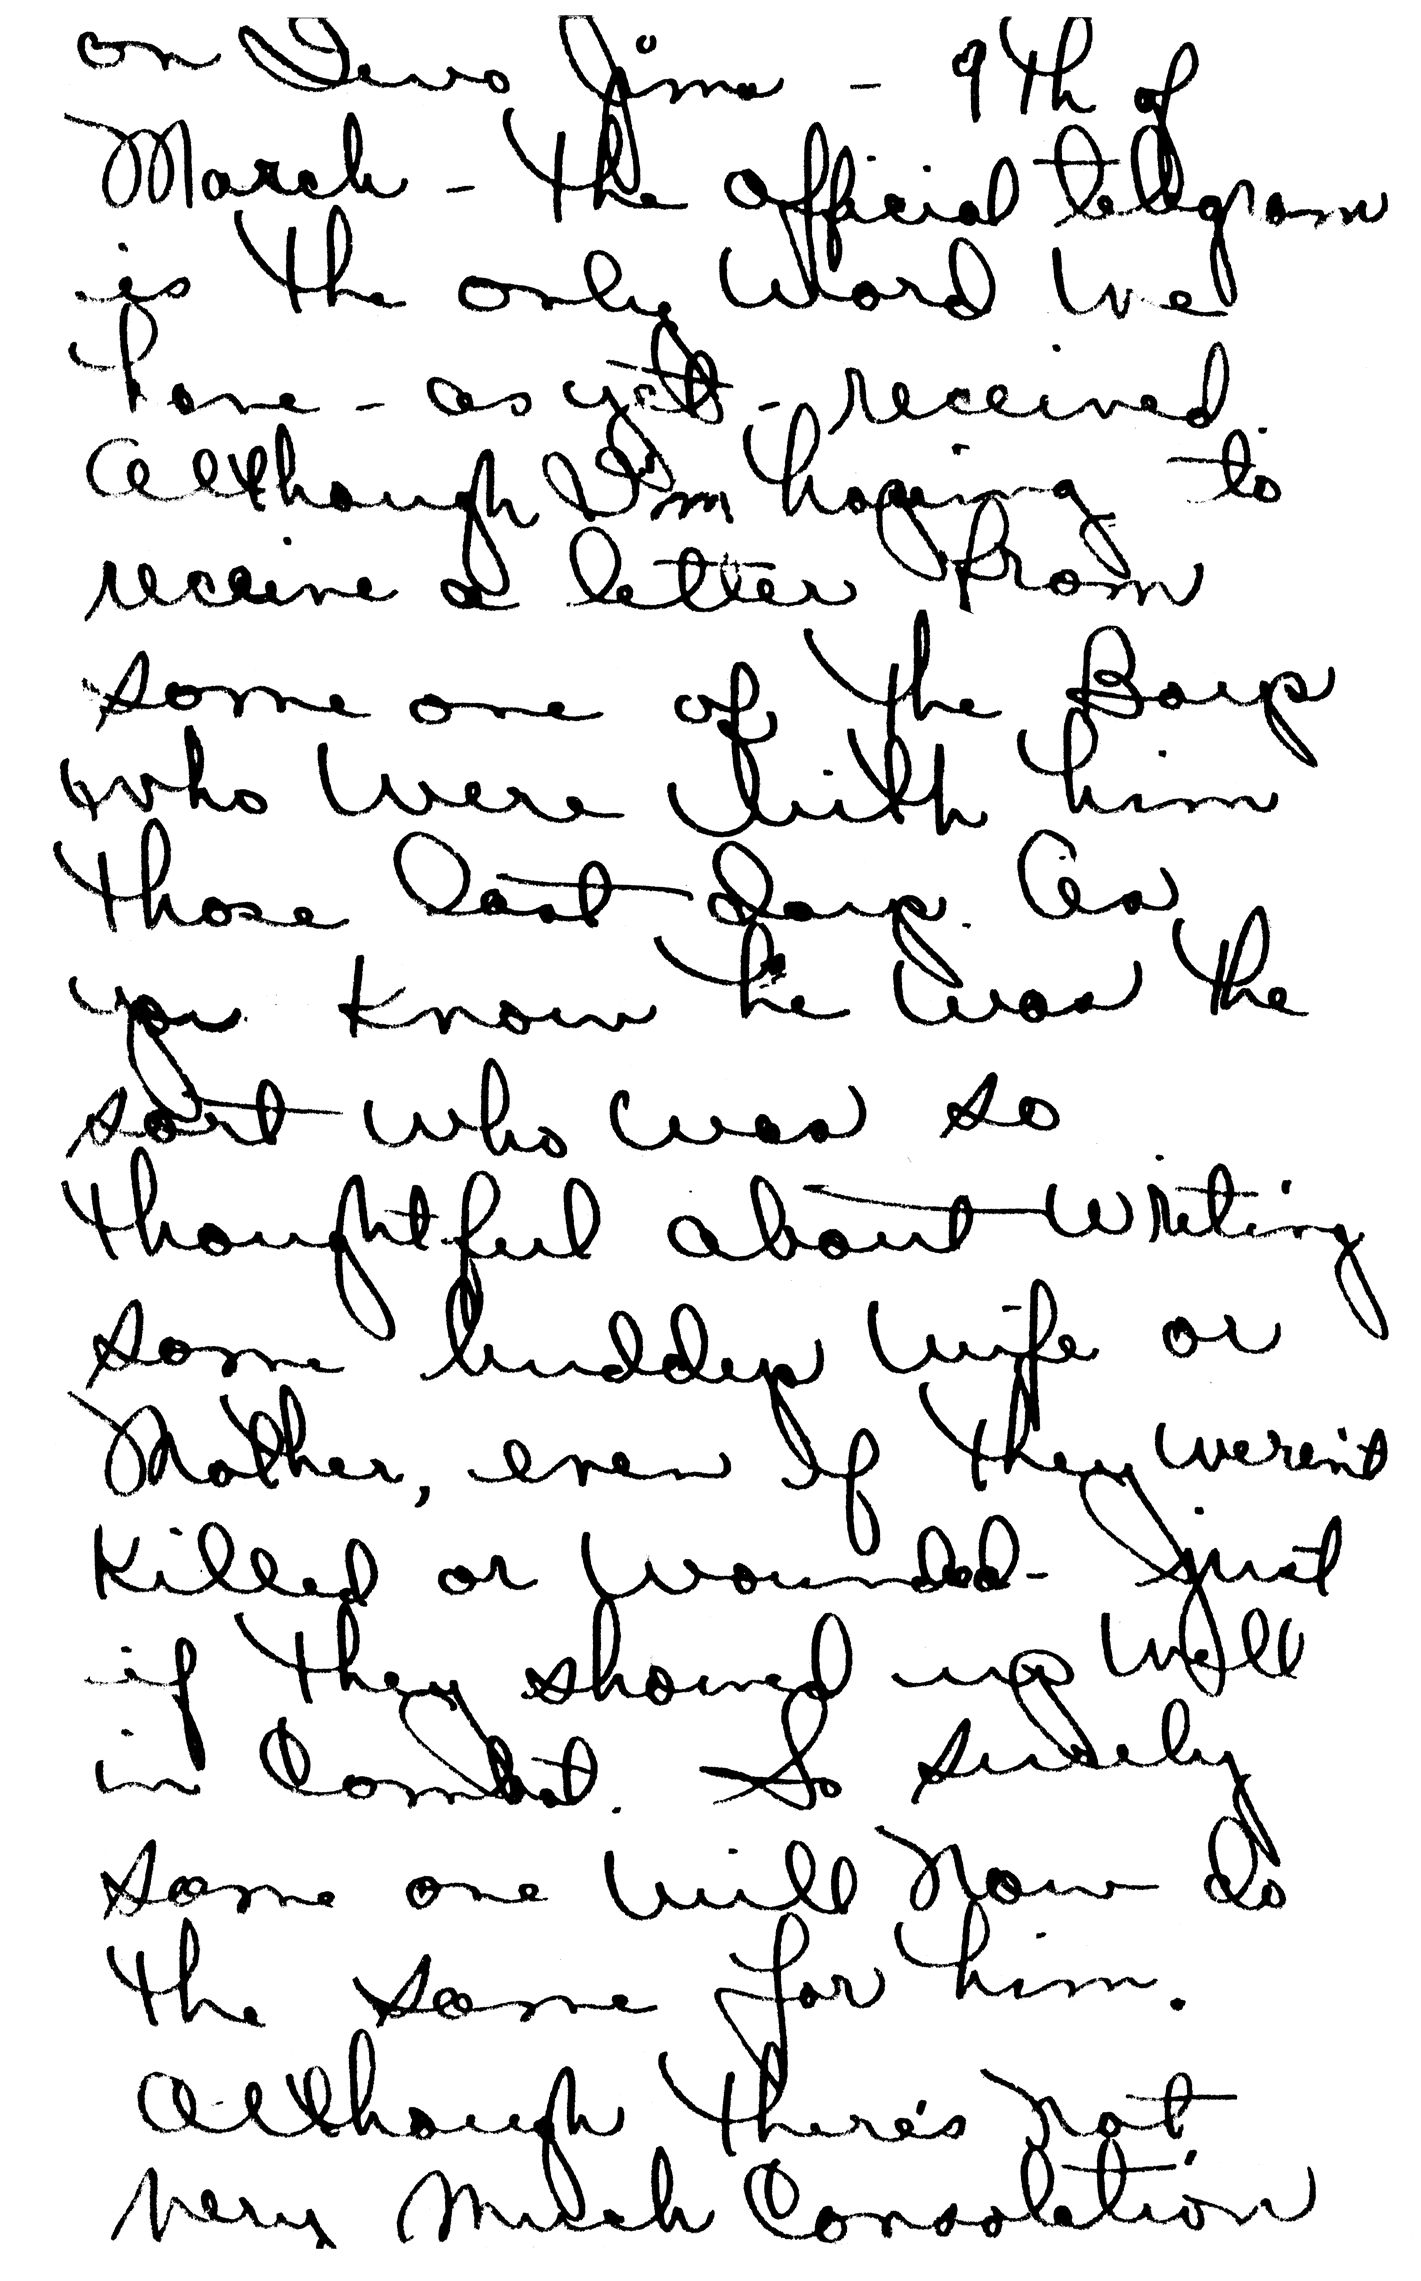 on Iwo Jima - 9th of
March - the official telegram
is the only word we
have - as yet - received.
Although I'm hoping to
receive a letter from
some one of the Boys
who were with him
those last days. As
you know he was the
sort who was so
thoughtful about writing
some buddys wife or
Mother, even if they weren't
killed or wounded - just
if they showed up well
in Combat. So surely
some one will now do
the same for him.
Although there's not
very much Consolation